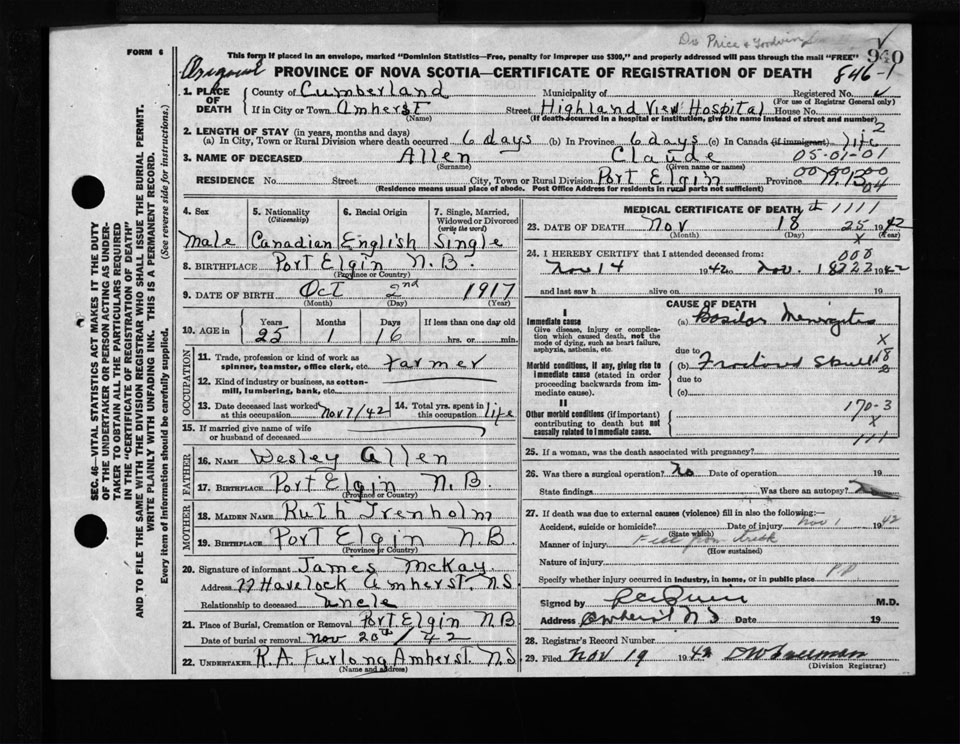 Drs Price & Goodwin
FORM 6
This form if placed in an envelope, marked "Dominion Statistics—Free, penalty for improper use $300," and properly addressed will pass through the mail "FREE"
940
846-1
PROVINCE OF NOVA SCOTIA—CERTIFICATE OF REGISTRATION OF DEATH
1. PLACE OF DEATH
County of Cumberland Municipality of Registered No.
(For use of Registrar General only)
If in City or Town Amherst Street Highland View Hospital House No.
(Name) (If death occurred in a hospital or institution, give the name instead of street and number)
2. LENGTH OF STAY (in years, months and days)
(a) In City, Town or Rural Division where death occurred 6 days (b) In Province 6 days (c) In Canada (if immigrant) life
2
3. NAME OF DECEASED Allen Claude 05-01-01
(Surname) (Given name or names)
RESIDENCE No. Street City, Town or Rural Division Port Elgin Province N.B.
04
(Residence means usual place of abode. Post Office Address for residents in rural parts not sufficient)
4. Sex 5. Nationality (Citizenship) 6. Racial Origin 7. Single, Married, Widowed or Divorced (write the word)
Male Canadian English Single
8. BIRTHPLACE Port Elgin N.B.
(Province or Country)
9. DATE OF BIRTH Oct 2nd 1917
(Month) (Day) (Year)
10. AGE in Years Months Days If less than one day old
25 1 16 hrs. or min.
OCCUPATION
11. Trade, profession or kind of work as spinner, teamster, office clerk, etc. Farmer
12. Kind of industry or business, as cotton-mill, lumbering, bank, etc.
13. Date deceased last worked at this occupation Nov 7/42 14. Total yrs. spent in this occupation life
15. If married give name of wife or husband of deceased
FATHER
16. NAME Wesley Allen
17. BIRTHPLACE Port Elgin N.B.
(Province or Country)
MOTHER
18. MAIDEN NAME Ruth Trenholm
19. BIRTHPLACE Port Elgin N.B.
(Province or Country)
20. Signature of informant James McKay
Address 77 Havelock Amherst. N.S
Relationship to deceased Uncle
21. Place of Burial, Cremation or Removal Port Elgin N.B
Date of burial or removal Nov 20th/42
22. UNDERTAKER R.A. Furlong Amherst. N.S
(Name and address)
MEDICAL CERTIFICATE OF DEATH
1111
23. DATE OF DEATH Nov 18th 25 1942
(Month) (Day) (Year)
x
24. I HEREBY CERTIFY that I attended deceased from:
000
Nov 14 1942 to Nov. 18 222 1942
and last saw h alive on 19
CAUSE OF DEATH
I
Immediate cause
Give disease, injury or complication which caused death, not the mode of dying, such as heart failure, asphyxia, asthenia, etc.
(a) Basilar Meningitis
x
due to
Morbid conditions, if any, giving rise to immediate cause (stated in order proceeding backwards from immediate cause).
(b) Fractured Skull
18
8
due to
(c)
II
170-3
Other morbid conditions (if important) contributing to death but not causally related to immediate cause.
x
111
25. If a woman, was the death associated with pregnancy?
26. Was there a surgical operation? No Date of operation 19
State findings Was there an autopsy?
27. If death was due to external causes (violence) fill in also the following:—
Accident, suicide or homicide? Date of injury Nov 1 1942
(State which)
Manner of injury Fell from truck
(How sustained)
Nature of injury
Specify whether injury occurred in industry, in home, or in public place P.P
Signed by M.D.
Address Amherst N S Date 19
28. Registrar's Record Number
29. Filed Nov 19 1942
(Division Registrar)
SEC. 46—VITAL STATISTICS ACT MAKES IT THE DUTY OF THE UNDERTAKER OR PERSON ACTING AS UNDERTAKER TO OBTAIN ALL THE PARTICULARS REQUIRED IN THE "CERTIFICATE OF REGISTRATION OF DEATH" AND TO FILE THE SAME WITH THE DIVISION REGISTRAR WHO SHALL ISSUE THE BURIAL PERMIT.
WRITE PLAINLY WITH UNFADING INK. THIS IS A PERMANENT RECORD.
Every item of Information should be carefully supplied. (See reverse side for instructions.)